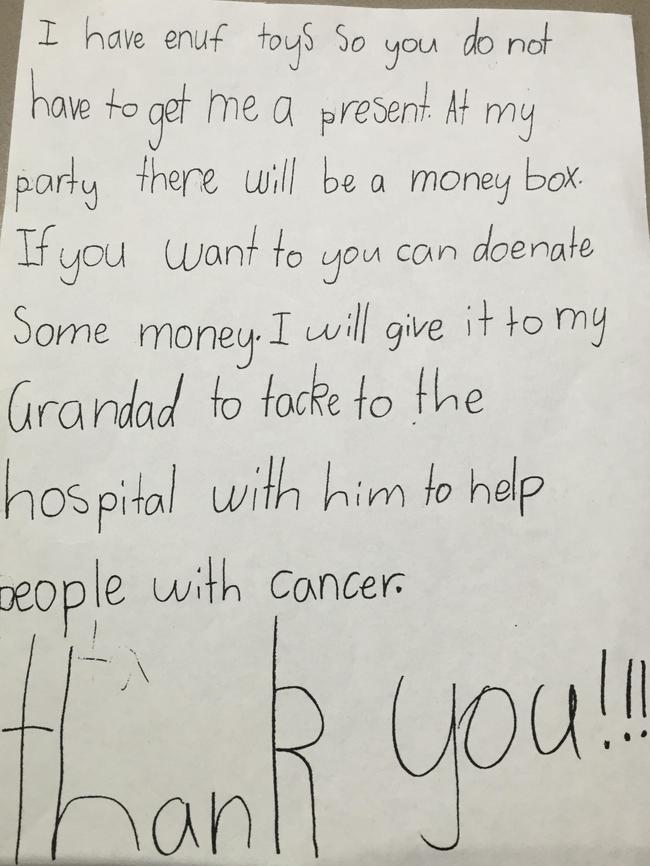 I have enuf toys So you do not
have to get me a present. At my
party there will be a money box.
If you want to you can doenate
Some money. I will give it to my
Grandad to tacke to the
hospital with him to help
people with cancer.
thank you!!!